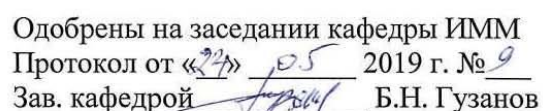 Одобрены на заседании кафедры ИММ
Протокол от «24» 05 2019 г. № 9
Зав. кафедрой Б.Н. Гузанов